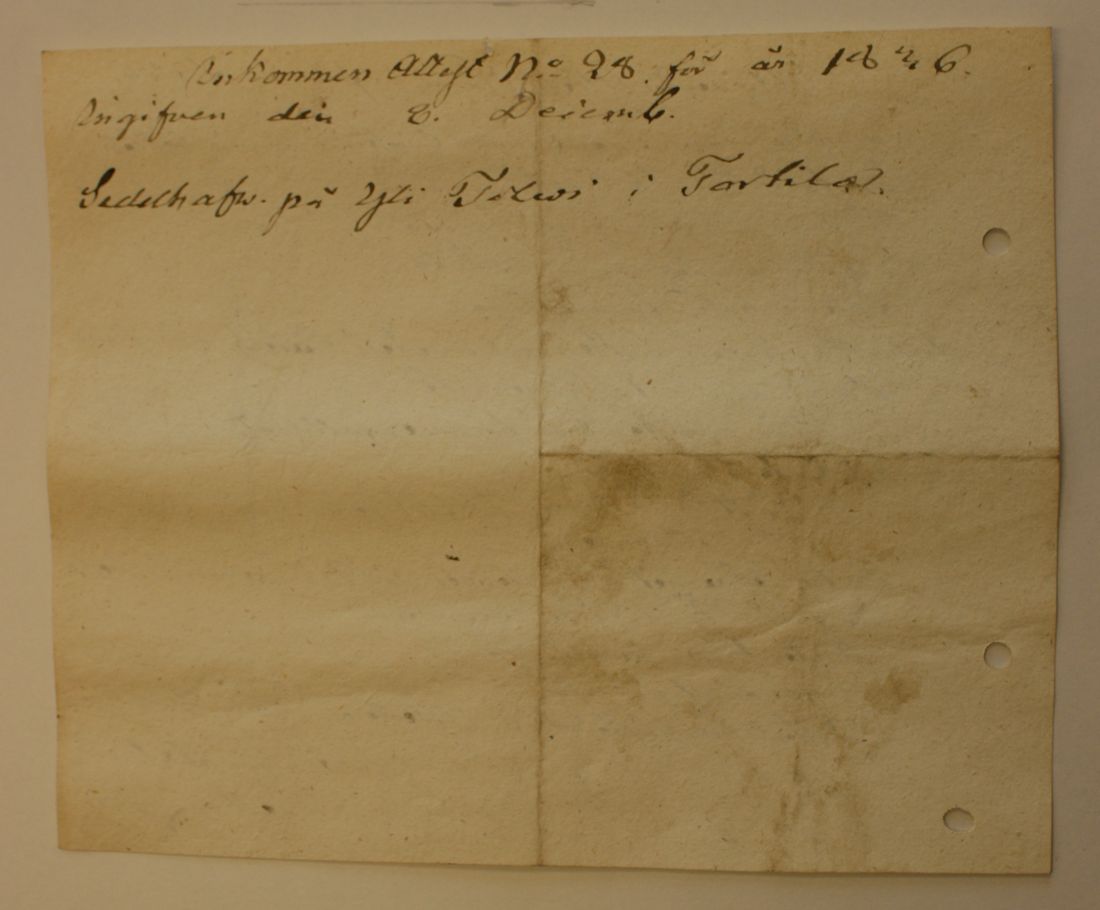 Inkommen Attest N:o 28. för år 1846.
Ingifven den 8. Decemb.
Sedelhafv. på Yli Tolwi i Torkila.